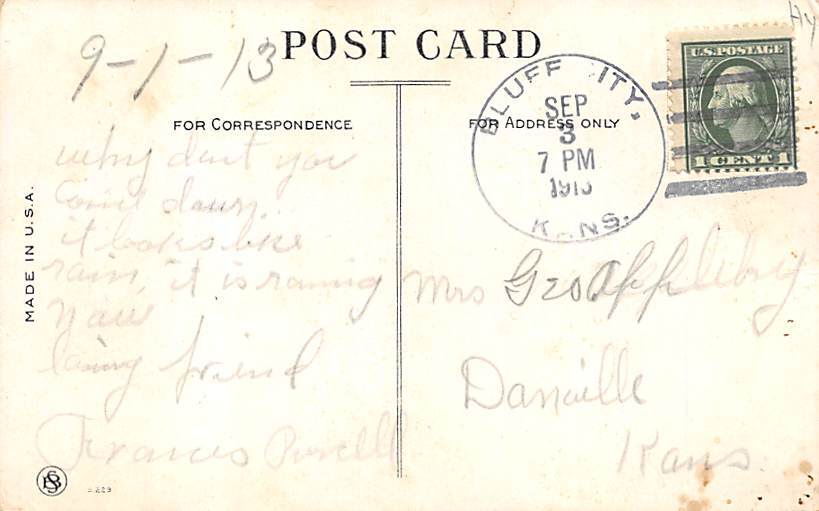 Hy
9-1-13
POST CARD
U.S. POSTAGE
1 CENT 1
BLUFF ITY,
SEP
3
7 PM
1913
K NS.
FOR CORRESPONDENCE
FOR ADDRESS ONLY
MADE IN U.S.A.
why dont you
come down.
it looks like
rain, it is raning
now
loving friend
Frances Powell
Mrs Geo Appleby
Danville
Kans.
SB
S. 229